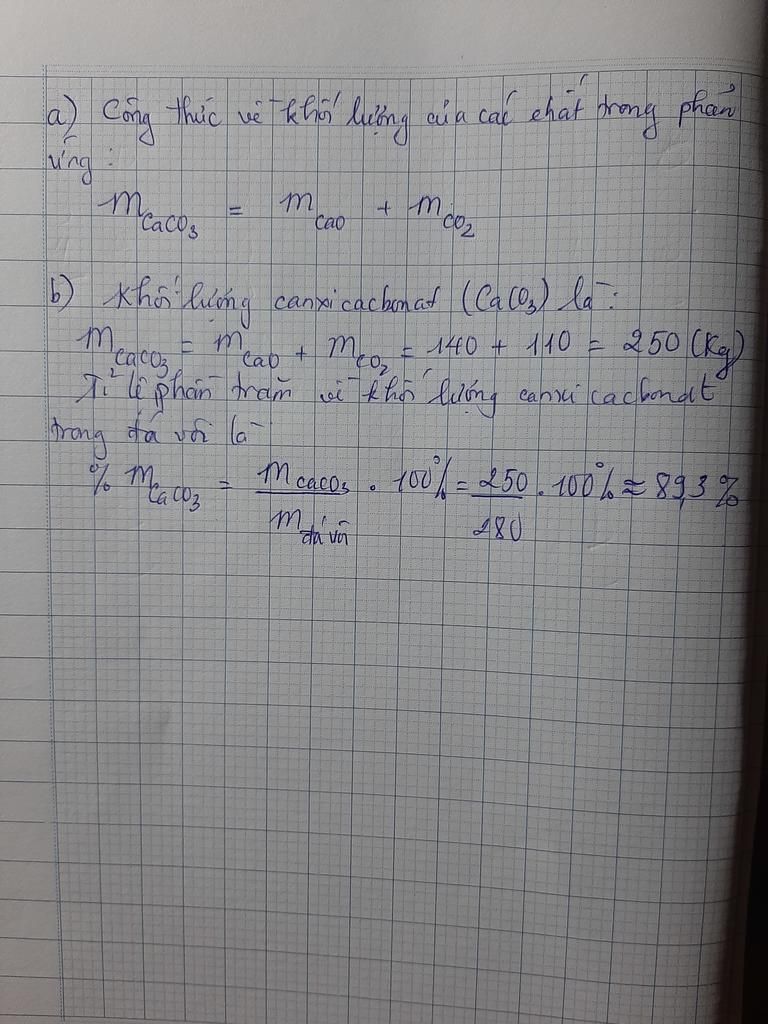 a) Công thức về khối lượng của các chất trong phản
ứng :
m CaCO3 = m CaO + m CO2
b) Khối lượng canxicacbonat (CaCO3) là :
m CaCO3 = m CaO + m CO2 = 140 + 110 = 250 (Kg)
Tỉ lệ phần trăm về khối lượng canxi cacbonat
trong đá vôi là
% m CaCO3 = m CaCO3 / m đá vôi . 100% = 250 / 280 . 100% ≈ 89,3 %